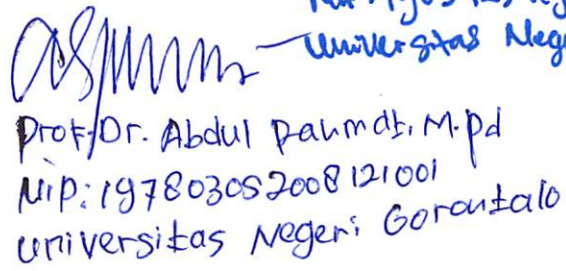 Universitas Nege
Prof. Dr. Abdul Rahmat, M.pd
Nip: 197803052008121001
Universitas Negeri Gorontalo